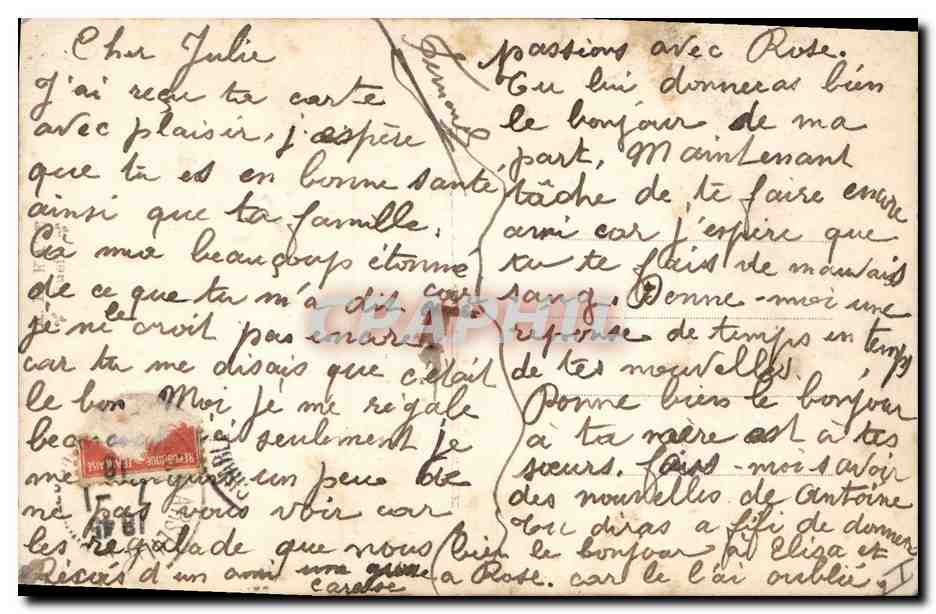 Cher Julie
J'ai reçu ta carte
avec plaisir, j'espère
que tu es en bonne sante
ainsi que ta famille.
Ca mia beaucoup étonné
de ce que tu m'a dis car
je ne le croit pas encore
car tu me disais que c'était
le bon Moi je me régale
seulement je
un peu de
ne pas vous voir car
les regalade que nous
d'un ami une
caresse
Fernand
passions avec Rose.
Tu lui donneras bien
le bonjour de ma
part, Maintenant
tâche de te faire encore
ami car j'espère que
tu te fais de mauvais
sang. Donne-moi une
réponse de temps en temps
de tes nouvelles.
Donne bien le bonjour
à ta mère est à tes
sœurs. fais-moi savoir
des nouvelles de Antoine
Tu diras a fifi de donner
bien le bonjour à Eliza et
a Rose. car le l'ai oublié,
REPUBLIQUE FRANÇAISE
CPAPHIL